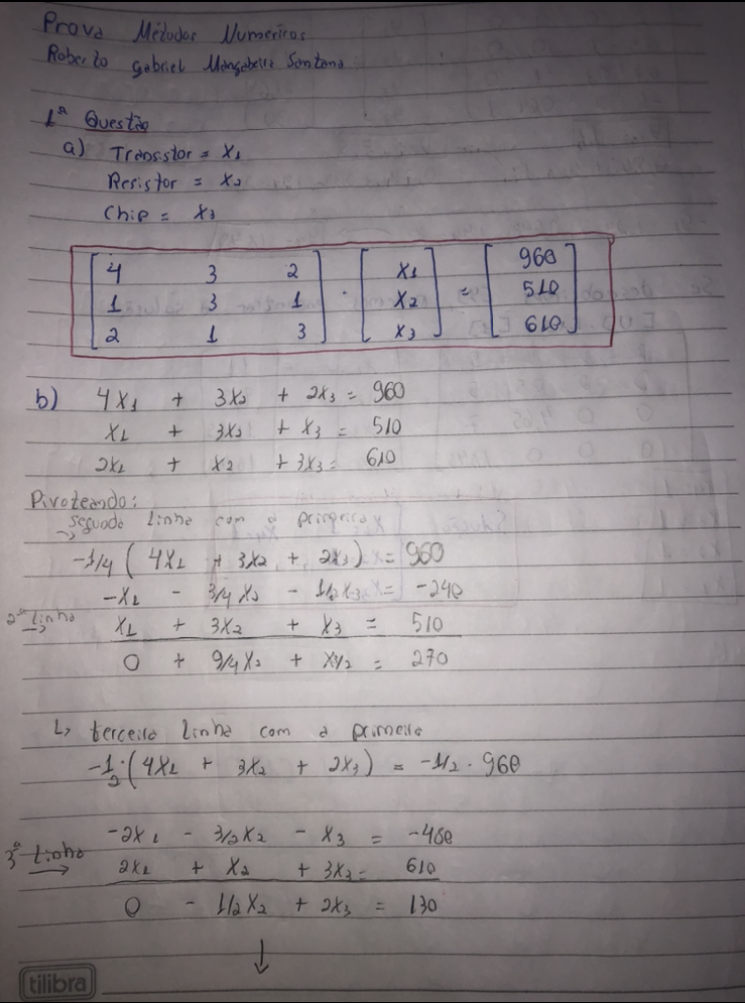 Prova Métodos Numericos
Roberto Gabriel Mangabeira Santana
1ª Questão
a) Transstor = X1
Resistor = X2
Chip = X3
[4 3 2] [X1] [960]
[1 3 1] · [X2] = [510]
[2 1 3] [X3] [610]
b) 4X1 + 3X2 + 2X3 = 960
X1 + 3X2 + X3 = 510
2X1 + X2 + 3X3 = 610
Pivoteando:
→ segunda linha com a primeira
-1/4 ( 4X1 + 3X2 + 2X3) = 960
-X1 - 3/4 X2 - 1/2 X3 = -240
2ª linha → X1 + 3X2 + X3 = 510
0 + 9/4 X2 + X3/2 = 270
↳ terceira linha com a primeira
-1/2 · (4X1 + 3X2 + 2X3) = -1/2 · 960
-2X1 - 3/2 X2 - X3 = -480
3ª Linha → 2X1 + X2 + 3X3 = 610
0 - 1/2 X2 + 2X3 = 130
↓
tilibra